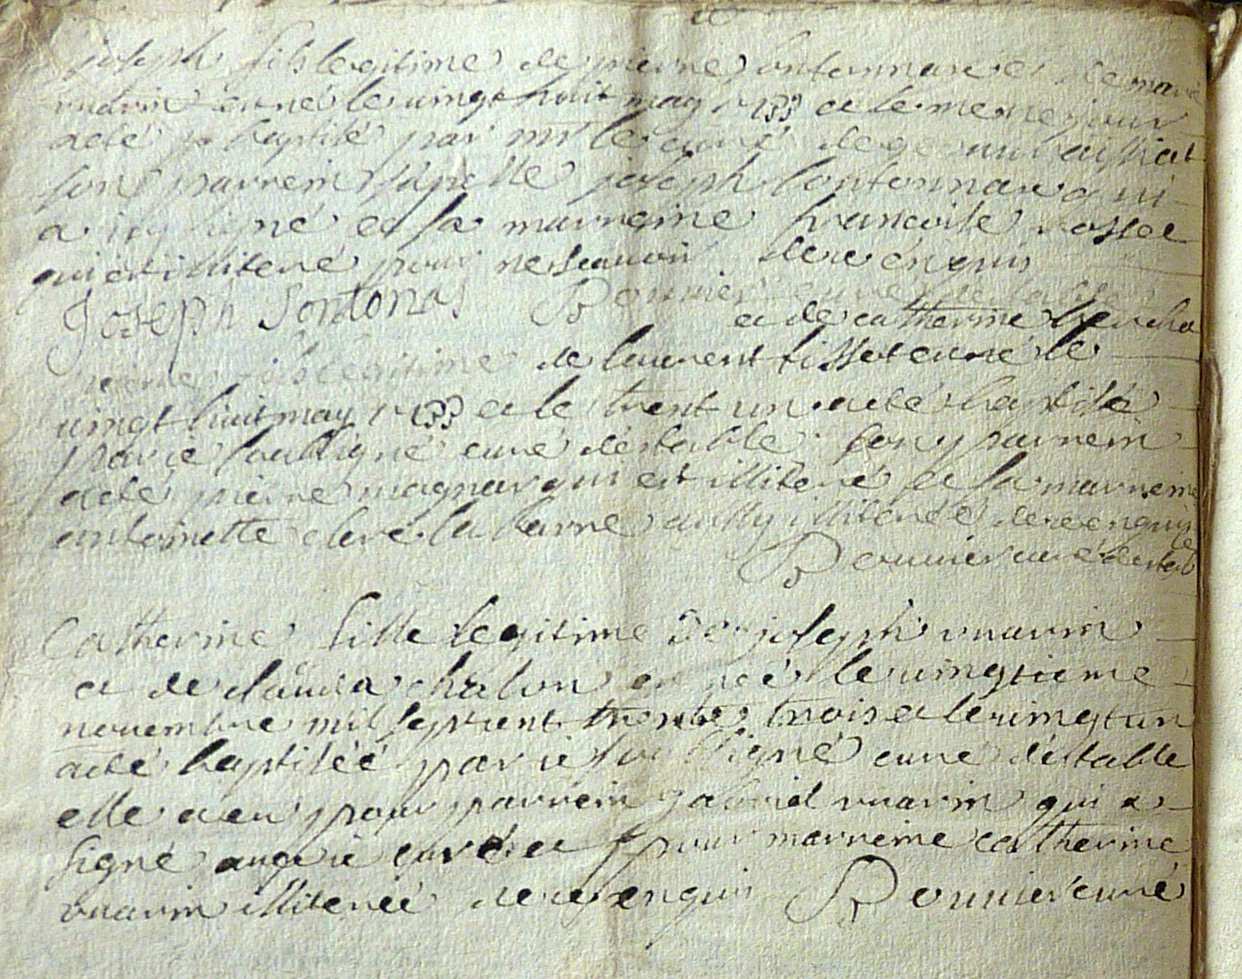 joseph fils legitime de pierre fontannaz et de marie
vuarin est né le vingt huit may 1733 et le meme jour
a eté baptisé par mr le curé de
son parrein s'apelle joseph fontonnaz qui
a icy signé et sa marreine francoise rosset
qui est illiteré pour ne scavoir de ce enquis
Joseph fontonas Bonnier curé
et de catherine
fils legitime de laurent tisset est né le
vingt huit may 1733 et le trent un a eté baptisé
par ie soubsigné curé d'estable son parrein
a eté pierre magnar qui est illiteré et la marreine
antoinette aussy illiterée de ce enquise
Bonnier curé d'estable
Catherine fille legitime de joseph vuarin
et de claudia chalon est née le vingtieme
novembre mil sept cent trente trois et le vingt un
a eté baptiséé par ie soubsigné curé d'estable
elle a eu pour parrein gabriel vuarin qui a
signé auec ie curé et pour marreine catherine
vuarin illiterée de ce enquis Bonnier curé